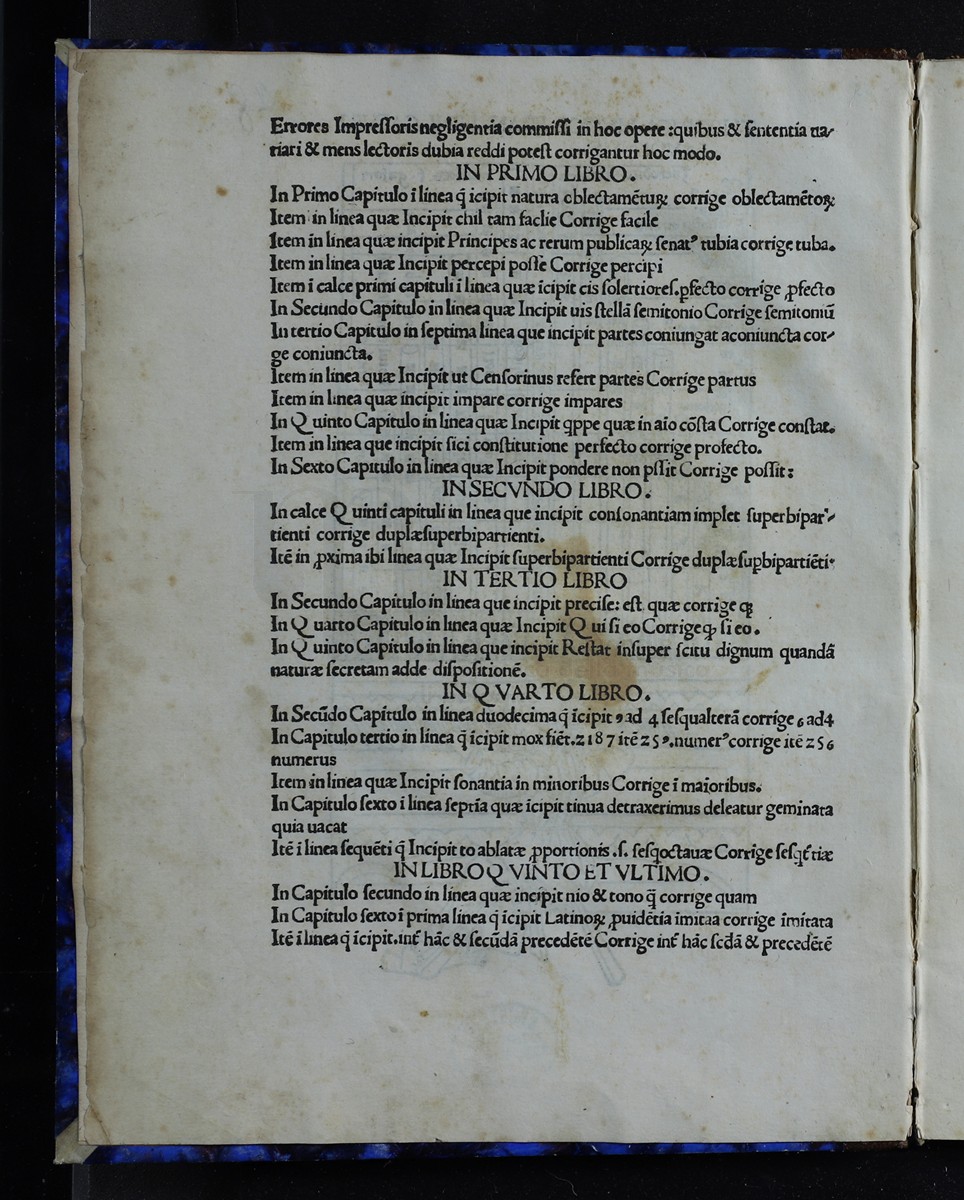 Errores Impreſſoris negligentia commiſſi in hoc opere :quibus & ſententia ua/
riari & mens lectoris dubia reddi poteſt corrigantur hoc modo.
IN PRIMO LIBRO.
In Primo Capitulo ī línea q̄ icipit natura cblectamētuꝝ corrige oblectamētoꝝ
Item in linea quæ Incipit chil tam faclie Corrige facile
Item in linea quæ incipit Principes ac rerum publicaꝝ ſenatꝰ tubia corrige tuba.
Item in linea quæ Incipit percepi poſſe Corrige percipi
Item i calce primi capituli i linea quæ icipit cis ſolertioreſ.ꝑfecto corrige ꝓfecto
In Secundo Capitulo in linea quæ Incipit uis ſtellā ſemitonio Corrige ſemitoniū
In tertio Capitulo in ſeptima linea que incipit partes coniungat aconiuncta cor/
ge coniuncta.
Item in linea quæ Incipit ut Cenſorinus refert partes Corrige partus
Item in linea quæ incipit impare corrige impares
In Quinto Capitulo in linea quæ Incipit q̇ppe quæ in aīo cōſta Corrige conſtat.
Item in linea que incipit ſici conſtitutione perfecto corrige profecto.
In Sexto Capitulo in linea quæ Incipit pondere non pſſit Corrige poſſit:
IN SECVNDO LIBRO.
In calce Quinti capituli in linea que incipit conſonantiam implet ſuperbipar/
tienti corrige duplæſuperbipartienti.
Itē in ꝓxima ibi linea quæ Incipit ſuperbipartienti Corrige duplæſuꝑbipartiēti.
IN TERTIO LIBRO
In Secundo Capitulo in linea que incipit preciſe: eſt quæ corrige ꝙ
In Quarto Capitulo in linea quæ Incipit Qui ſi eo Corrige ꝙ ſi eo.
In Quinto Capitulo in linea que incipit Reſtat inſuper ſcitu dignum quandā
naturæ ſecretam adde diſpoſitionē.
IN QVARTO LIBRO.
In Secūdo Capitulo in linea duodecima q̄ īcipit 9 ad 4 ſeſqualterā corrige 6 ad4
In Capitulo tertio in linea q̄ īcipit mox fiēt.2187 itē 259.numerꝰ corrige itē 256
numerus
Item in linea quæ Incipit ſonantia in minoribus Corrige ī maioribus.
In Capitulo ſexto i linea ſeptīa quæ īcipit tinua detraxerimus deleatur geminata
quia uacat
Itē i linea ſequēti q̄ Incipit to ablatæ ꝓportionis .ſ. ſeſq̇octauæ Corrige ſeſq̇t̄tiæ
IN LIBRO QVINTO ET VLTIMO.
In Capitulo ſecundo in linea quæ incipit nio & tono q̄ corrige quam
In Capitulo ſexto ī prima linea q̄ īcipit Latinoꝝ ꝓuidētia īmitaa corrige īmitata
Itē ī linea q̄ īcipit.int̄ hāc & ſecūdā precedētē Corrige int̄ hāc ſcd̄ā & precedētē